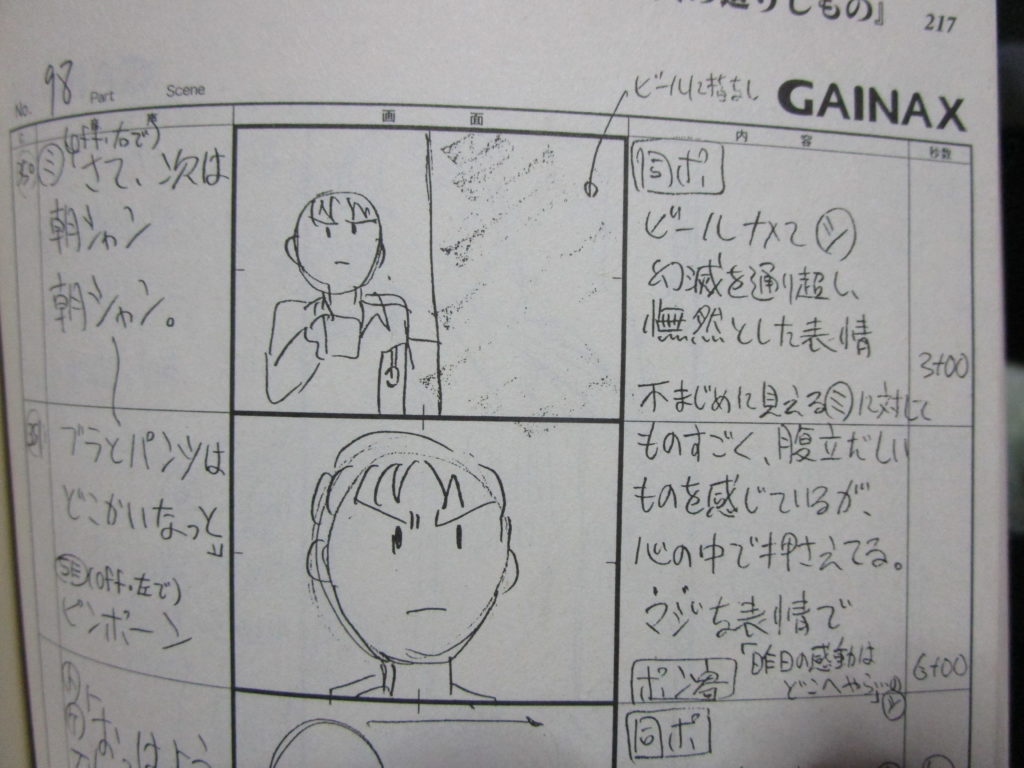 の造りしもの』
217
No. 98
Part
Scene
GAINAX
画面
内容
秒数
ビールに指なし
(off・右で)
ミ さて、次は
朝シャン
朝シャン。
同ポ
ビールナメて シ
幻滅を通り超し、
憮然とした表情
3+00
不まじめに見える ミ に対して
ブラとパンツは
どこかいなっと
SE (off・左で)
ピンポーン
ものすごく、腹立だしい
ものを感じているが、
心の中で押さえてる。
マジな表情で
ポン寄
「昨日の感動は
どこへやら…」
シ
6+00
おっはよう
同ポ